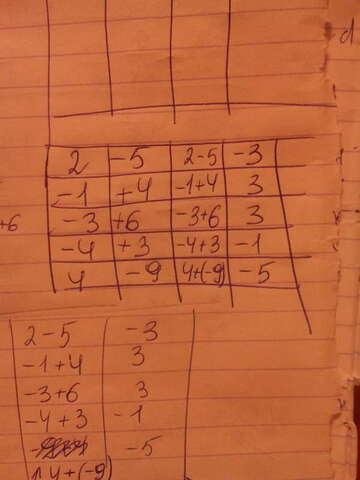 2 -5 2-5 -3
-1 +4 -1+4 3
+6 -3 +6 -3+6 3
-4 +3 -4+3 -1
4 -9 4+(-9) -5
2-5 -3
-1+4 3
-3+6 3
-4+3 -1
-5
4+(-9)